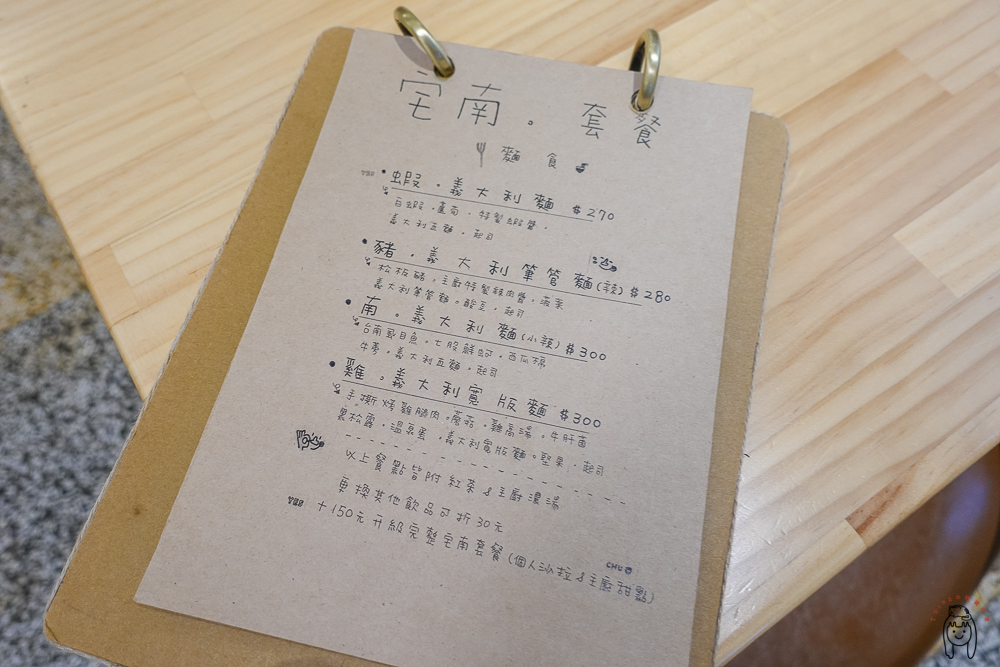 宅南。套餐
麵食
蝦。義大利麵 $270
白蝦。蘆筍。特製蝦醬。
義大利直麵。起司
豬。義大利筆管麵(辣) $280
松板豬。主廚特製豬肉醬。菠菜
義大利筆管麵。酸豆。起司
南。義大利麵(小辣) $300
台南虱目魚。七股鮮蚵。西瓜綿
牛蒡。義大利直麵。起司
雞。義大利寬版麵 $300
手撕烤雞腿肉。蘑菇。雞高湯。牛肝菌
黑松露。溫泉蛋。義大利寬版麵。堅果。起司
以上餐點皆附紅茶&主廚濃湯
更換其他飲品可折30元
+150元升級完整宅南套餐(個人沙拉&主廚甜點)